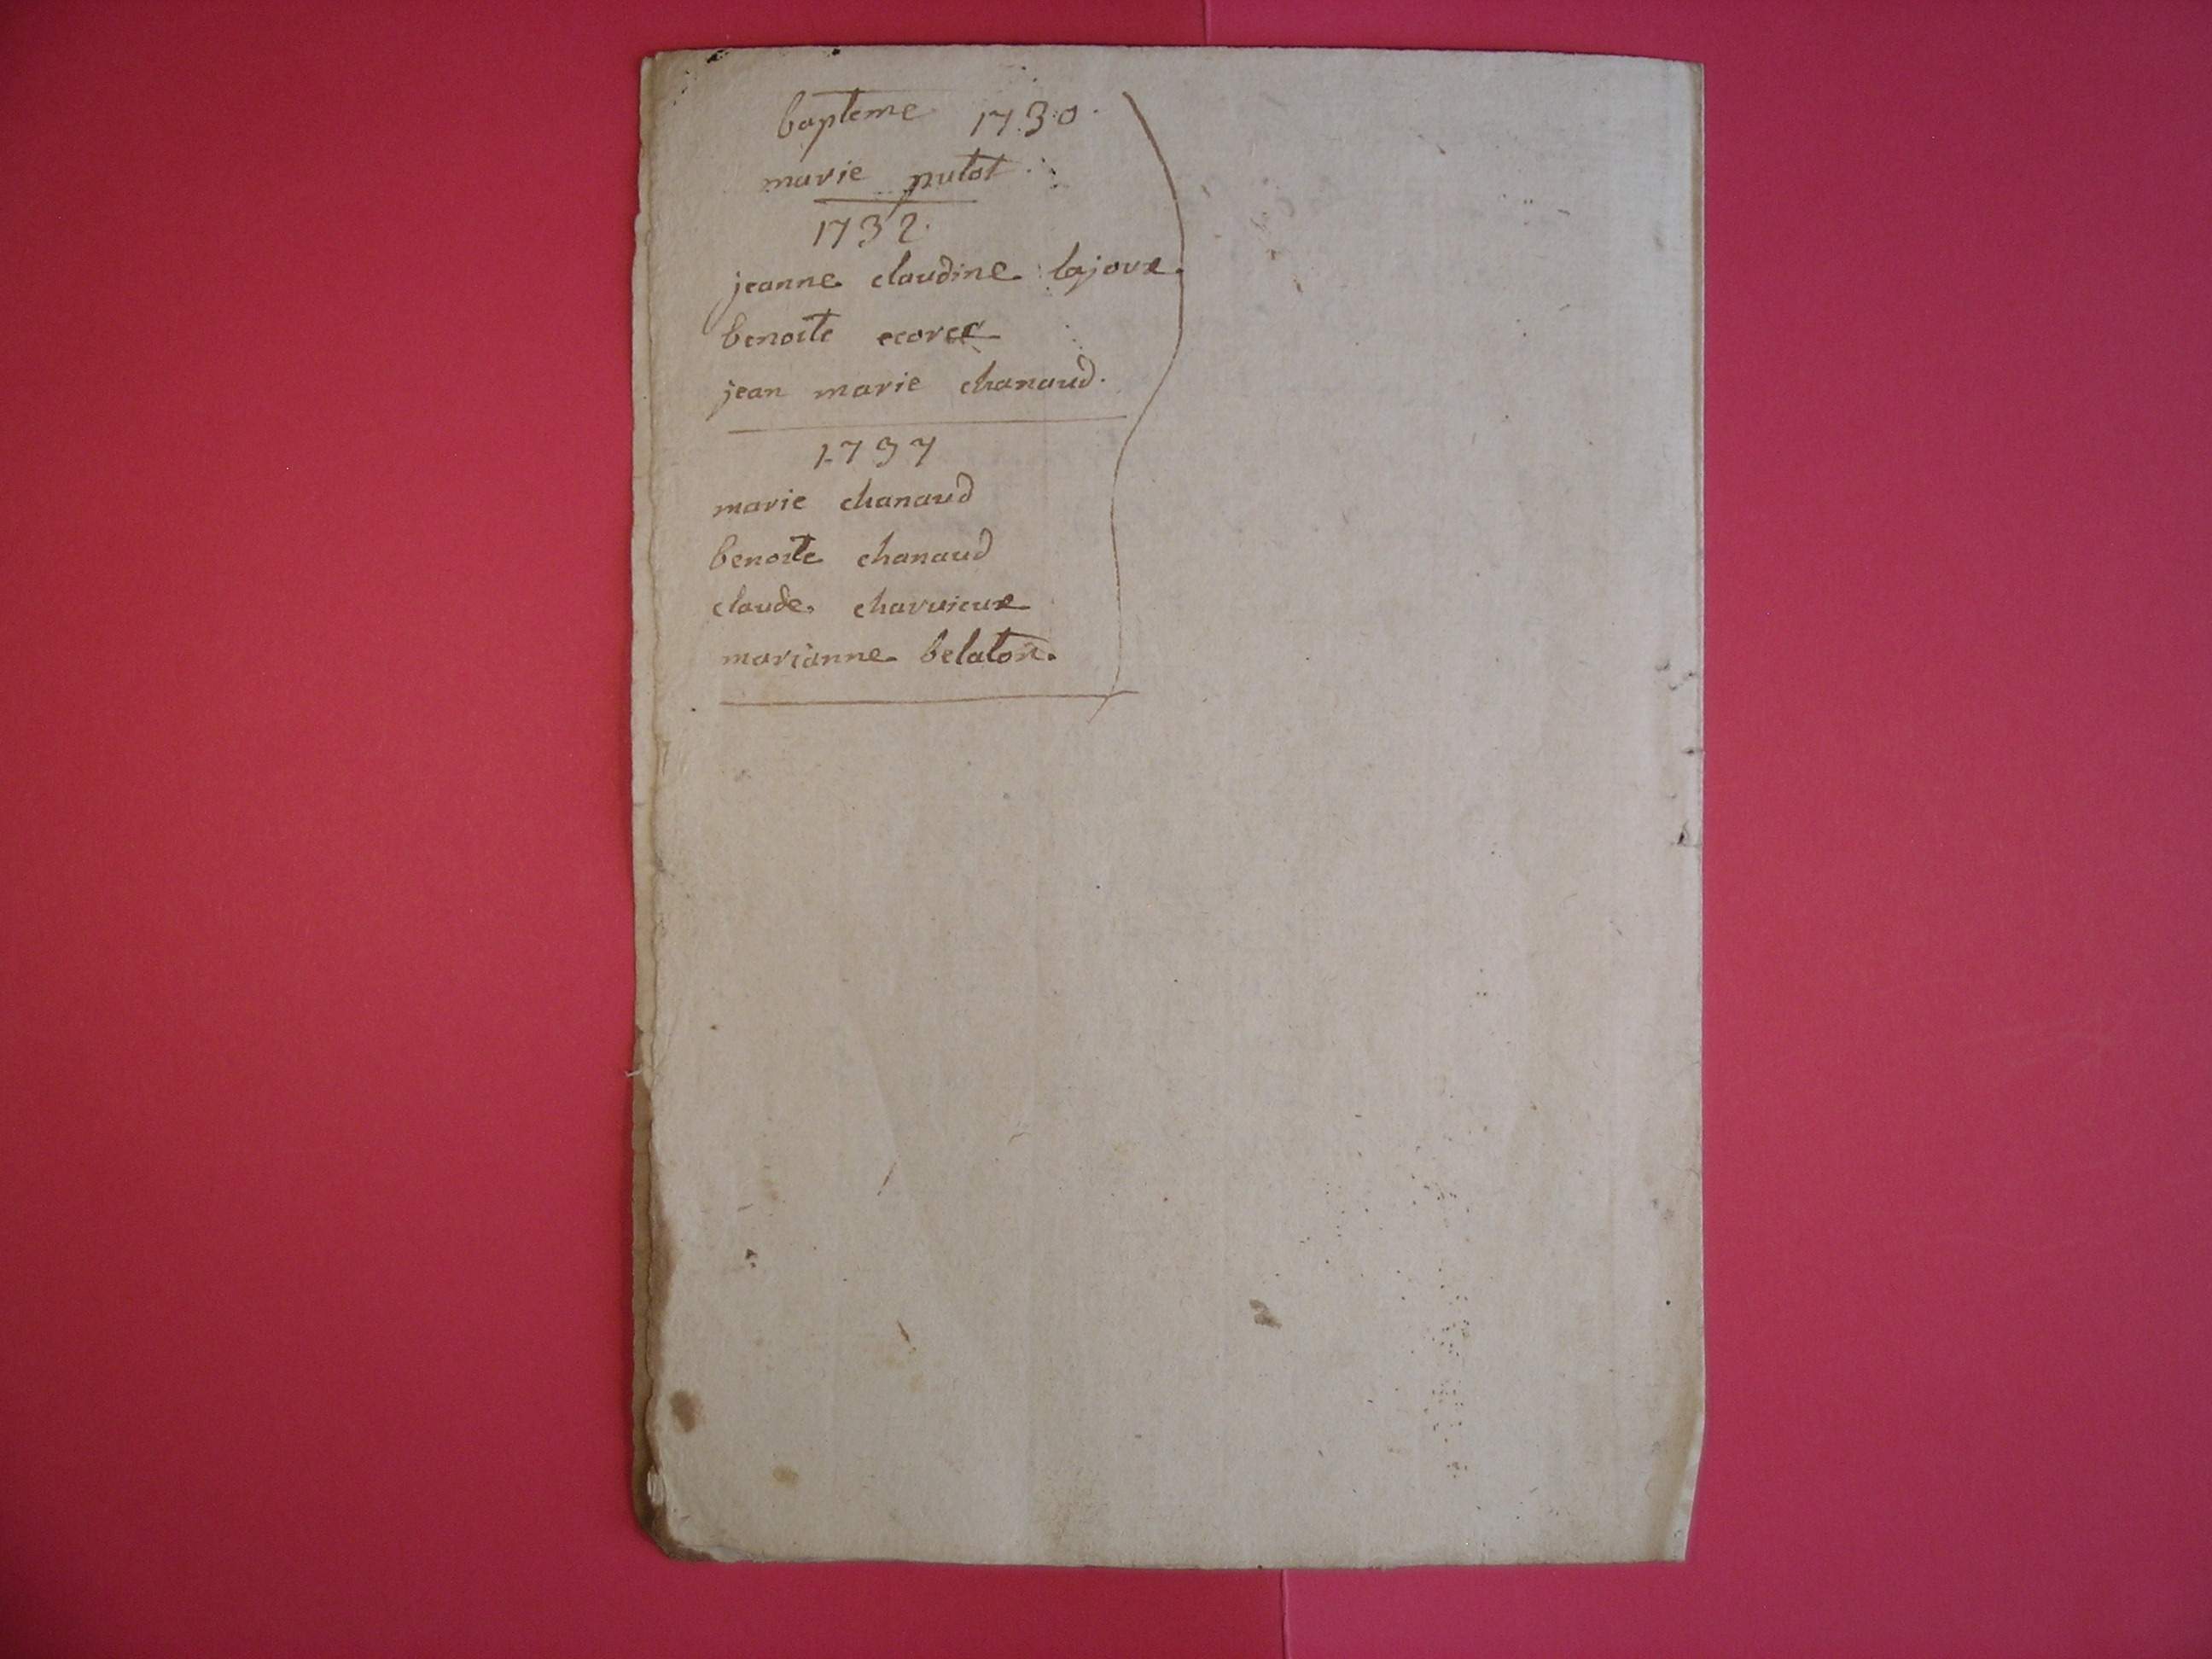 bapteme 1730.
marie putot
1732.
jeanne claudine lajoux.
benoite ecorce
jean marie chanaud.
1737
marie chanaud
benoite chanaud
claude charvieux
marianne belaton.